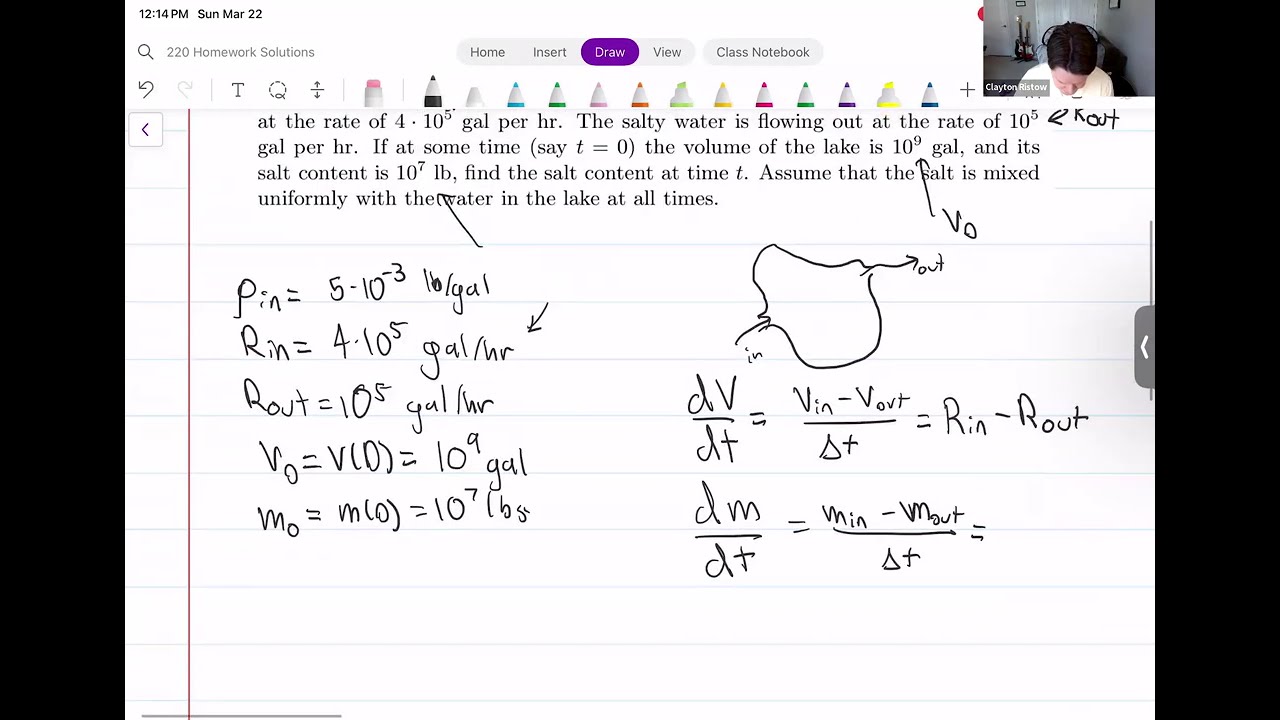 12:14 PM Sun Mar 22
220 Homework Solutions
Home Insert Draw View Class Notebook
T
Clayton Ristow
at the rate of 4 · 10⁵ gal per hr. The salty water is flowing out at the rate of 10⁵ ← Rout
gal per hr. If at some time (say t = 0) the volume of the lake is 10⁹ gal, and its
salt content is 10⁷ lb, find the salt content at time t. Assume that the salt is mixed
uniformly with the water in the lake at all times.
V₀
out
in
ρin = 5·10⁻³ lb/gal
Rin = 4·10⁵ gal/hr
Rout = 10⁵ gal/hr
V₀ = V(0) = 10⁹ gal
m₀ = m(0) = 10⁷ lbs
dV/dt = (Vin − Vout)/Δt = Rin − Rout
dm/dt = (min − mout)/Δt =